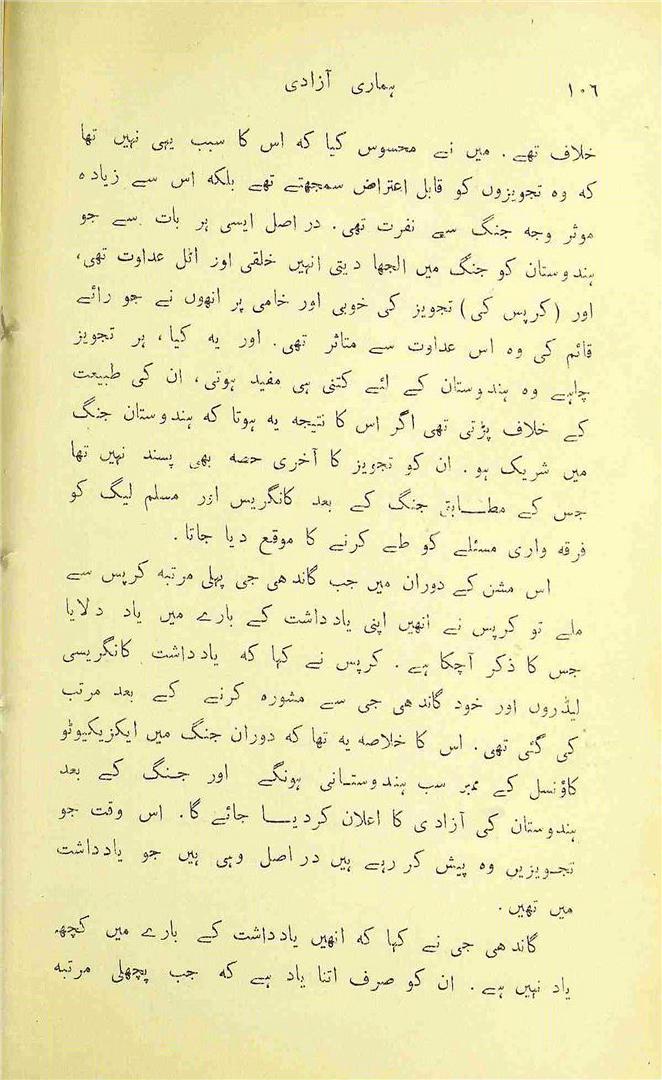 ١٠٦ ہماری آزادی
خلاف تھے۔ میں نے محسوس کیا کہ اس کا سبب یہی نہیں تھا
کہ وہ تجویزوں کو قابل اعتراض سمجھتے تھے بلکہ اس سے زیادہ
موثر وجہ جنگ سے نفرت تھی۔ دراصل ایسی ہر بات سے جو
ہندوستان کو جنگ میں الجھا دیتی انہیں خلقی اور اٹل عداوت تھی،
اور (کرپس کی) تجویز کی خوبی اور خامی پر انھوں نے جو رائے
قائم کی وہ اس عداوت سے متاثر تھی۔ اور یہ کیا، ہر تجویز
چاہے وہ ہندوستان کے لئے کتنی ہی مفید ہوتی، ان کی طبیعت
کے خلاف پڑتی تھی اگر اس کا نتیجہ یہ ہوتا کہ ہندوستان جنگ
میں شریک ہو۔ ان کو تجویز کا آخری حصہ بھی پسند نہیں تھا
جس کے مطابق جنگ کے بعد کانگریس اور مسلم لیگ کو
فرقہ واری مسئلے کو طے کرنے کا موقع دیا جاتا۔
اس مشن کے دوران میں جب گاندھی جی پہلی مرتبہ کرپس سے
ملے تو کرپس نے انھیں اپنی یادداشت کے بارے میں یاد دلایا
جس کا ذکر آچکا ہے۔ کرپس نے کہا کہ یادداشت کانگریسی
لیڈروں اور خود گاندھی جی سے مشورہ کرنے کے بعد مرتب
کی گئی تھی۔ اس کا خلاصہ یہ تھا کہ دوران جنگ میں ایکزیکیوٹو
کاؤنسل کے ممبر سب ہندوستانی ہونگے اور جنگ کے بعد
ہندوستان کی آزادی کا اعلان کردیا جائے گا۔ اس وقت جو
تجویزیں وہ پیش کر رہے ہیں دراصل وہی ہیں جو یادداشت
میں تھیں۔
گاندھی جی نے کہا کہ انھیں یادداشت کے بارے میں کچھ
یاد نہیں ہے۔ ان کو صرف اتنا یاد ہے کہ جب پچھلی مرتبہ